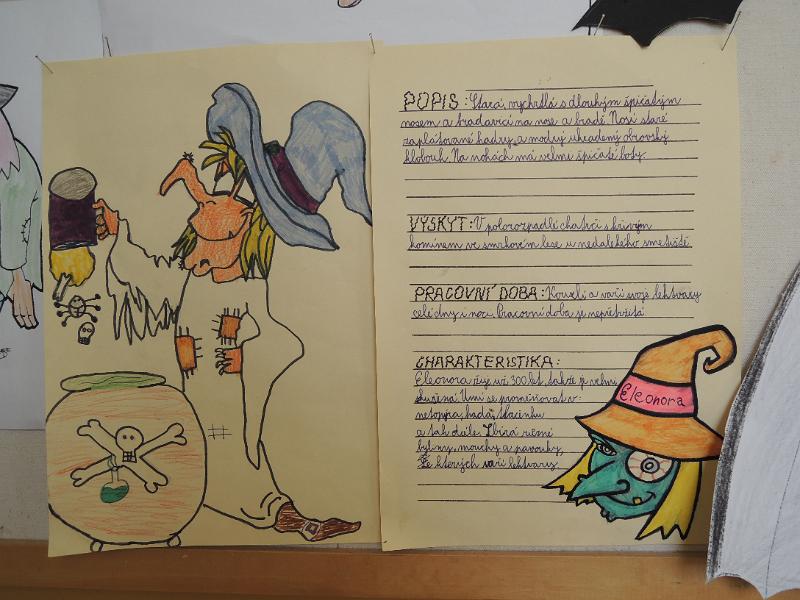 POPIS: Stará, vychrtlá s dlouhým špičatým
nosem a bradavicí na nose a bradě. Nosí staré
zaplátované hadry a modrý ohromný obrovský
klobouk. Na nohách má velmi špičaté boty.
VÝSKYT: V polorozpadlé chatrči s křivým
komínem ve smrkovém lese u nedalekého smetiště.
PRACOVNÍ DOBA: Kouzlí a vaří svoje lektvary
celé dny i noci. Pracovní doba je nepřetržitá.
CHARAKTERISTIKA:
Eleonora žije už 300 let, takže je velmi
zkušená. Umí se proměňovat v:
netopýra, hada,
a tak dále. Sbírá různé
byliny, mouchy a pavouky,
ze kterých vaří lektvary.
Eleonora